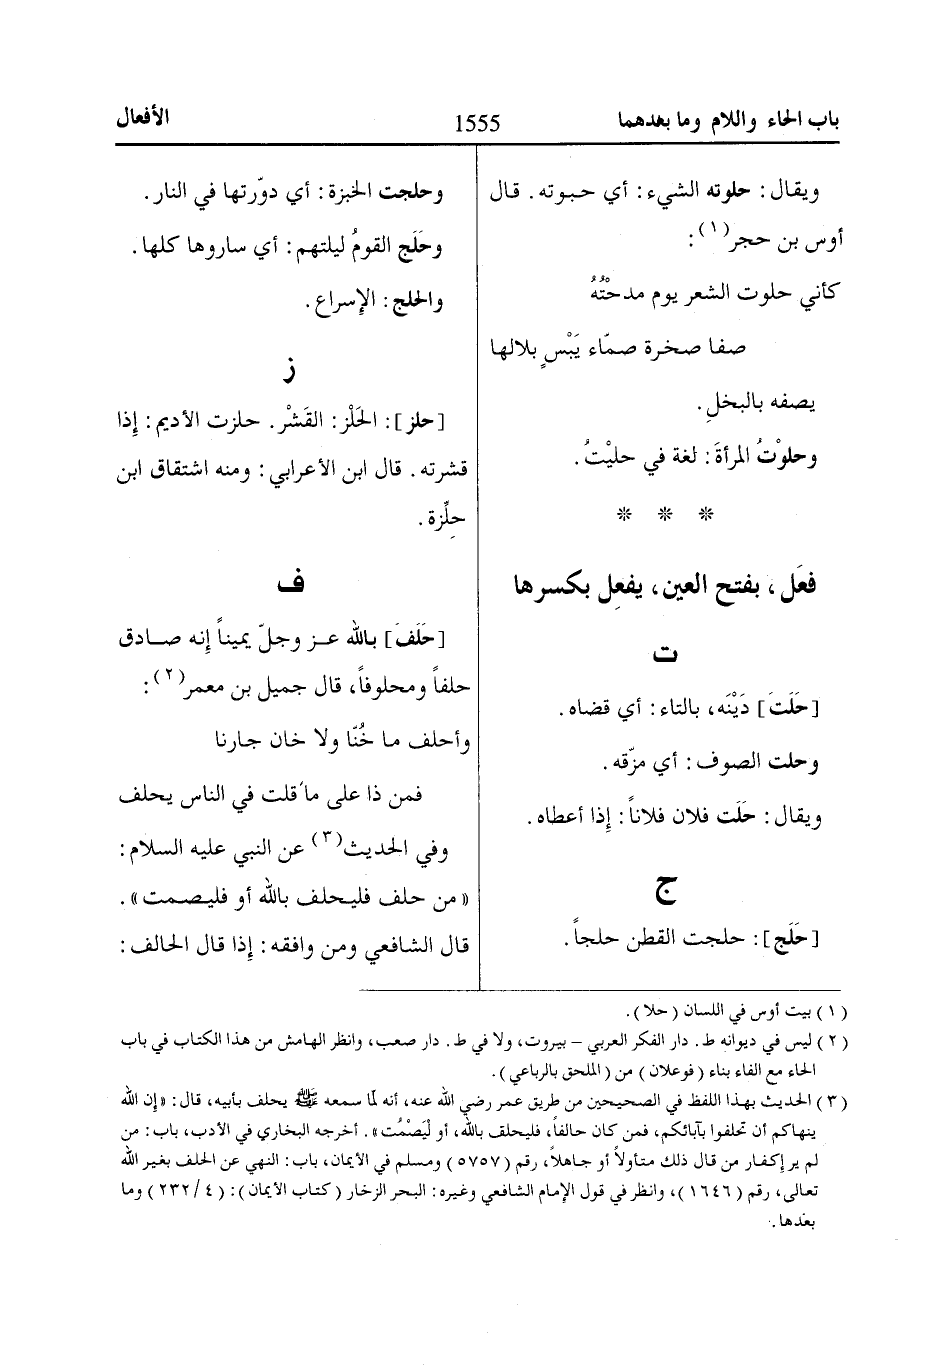 باب الحاء واللام وما بعدهما
1555
الأفعال
ويقال: حلوته الشيء: أي حبوته. قال
أوس بن حجر(١):
كأني حلوت الشعر يوم مدحْتُهُ
صفا صخرة صمّاء يَبْسٍ بلالها
يصفه بالبخلِ.
وحلوْتُ المرأةَ: لغة في حليْتُ.
* * *
فعَل، بفتح العين، يفعِل بكسرها
ت
[حَلَتَ] دَيْنَه، بالتاء: أي قضاه.
وحلت الصوف: أي مزّقه.
ويقال: حَلَت فلان فلاناً: إذا أعطاه.
ج
[حَلَج]: حلجت القطن حلجاً.
وحلجت الخبزة: أي دوّرتها في النار.
وحَلَج القومُ ليلتهم: أي ساروها كلها.
والحلج: الإسراع.
ز
[حلز]: الحَلْز: القَشْر. حلزت الأديم: إذا
قشرته. قال ابن الأعرابي: ومنه اشتقاق ابن
حِلِّزة.
ف
[حَلَفَ] بالله عز وجلّ يميناً إنه صادق
حلفاً ومحلوفاً، قال جميل بن معمر(٢):
وأحلف ما خُنّا ولا خان جارنا
فمن ذا على ما قلت في الناس يحلف
وفي الحديث(٣) عن النبي عليه السلام:
«من حلف فليحلف بالله أو فليصمت».
قال الشافعي ومن وافقه: إذا قال الحالف:
(١) بيت أوس في اللسان (حلا).
(٢) ليس في ديوانه ط. دار الفكر العربي – بيروت، ولا في ط. دار صعب، وانظر الهامش من هذا الكتاب في باب
الحاء مع الفاء بناء (فوعلان) من (الملحق بالرباعي).
(٣) الحديث بهذا اللفظ في الصحيحين من طريق عمر رضي الله عنه، أنه لمّا سمعه ﷺ يحلف بأبيه، قال: «إن الله
ينهاكم أن تحلفوا بآبائكم، فمن كان حالفاً، فليحلف بالله، أو ليَصْمُت». أخرجه البخاري في الأدب، باب: من
لم ير إكفار من قال ذلك متأولاً أو جاهلاً، رقم (٥٧٥٧) ومسلم في الأيمان، باب: النهي عن الحلف بغير الله
تعالى، رقم (١٦٤٦)، وانظر في قول الإمام الشافعي وغيره: البحر الزخار (كتاب الأيمان): (٤/ ٢٣٢) وما
بعدها.